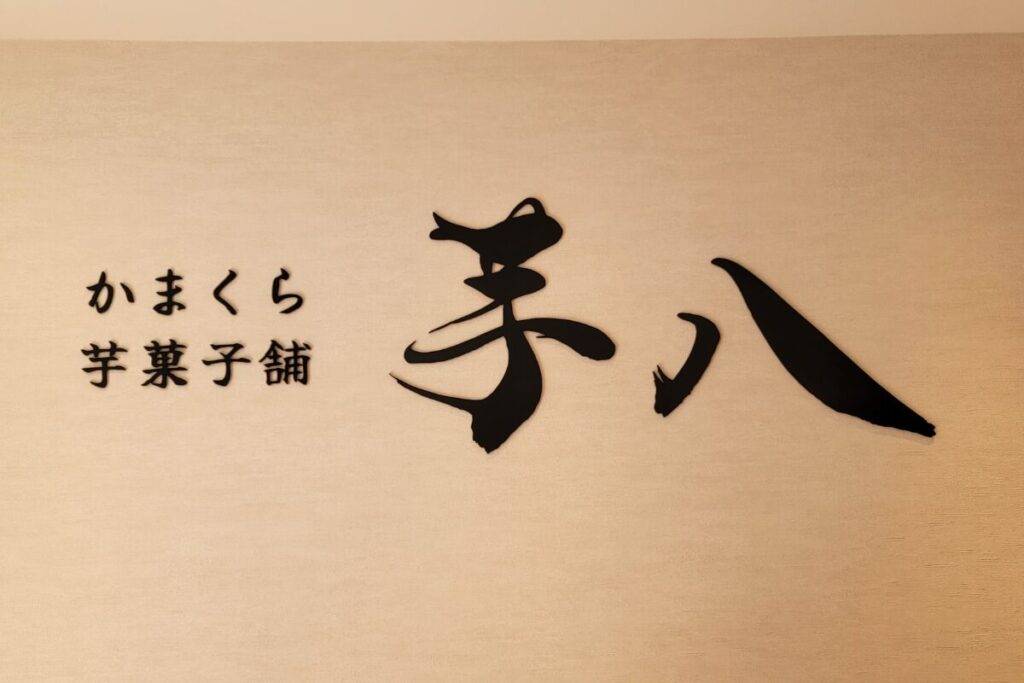 かまくら
芋菓子舗
芋八